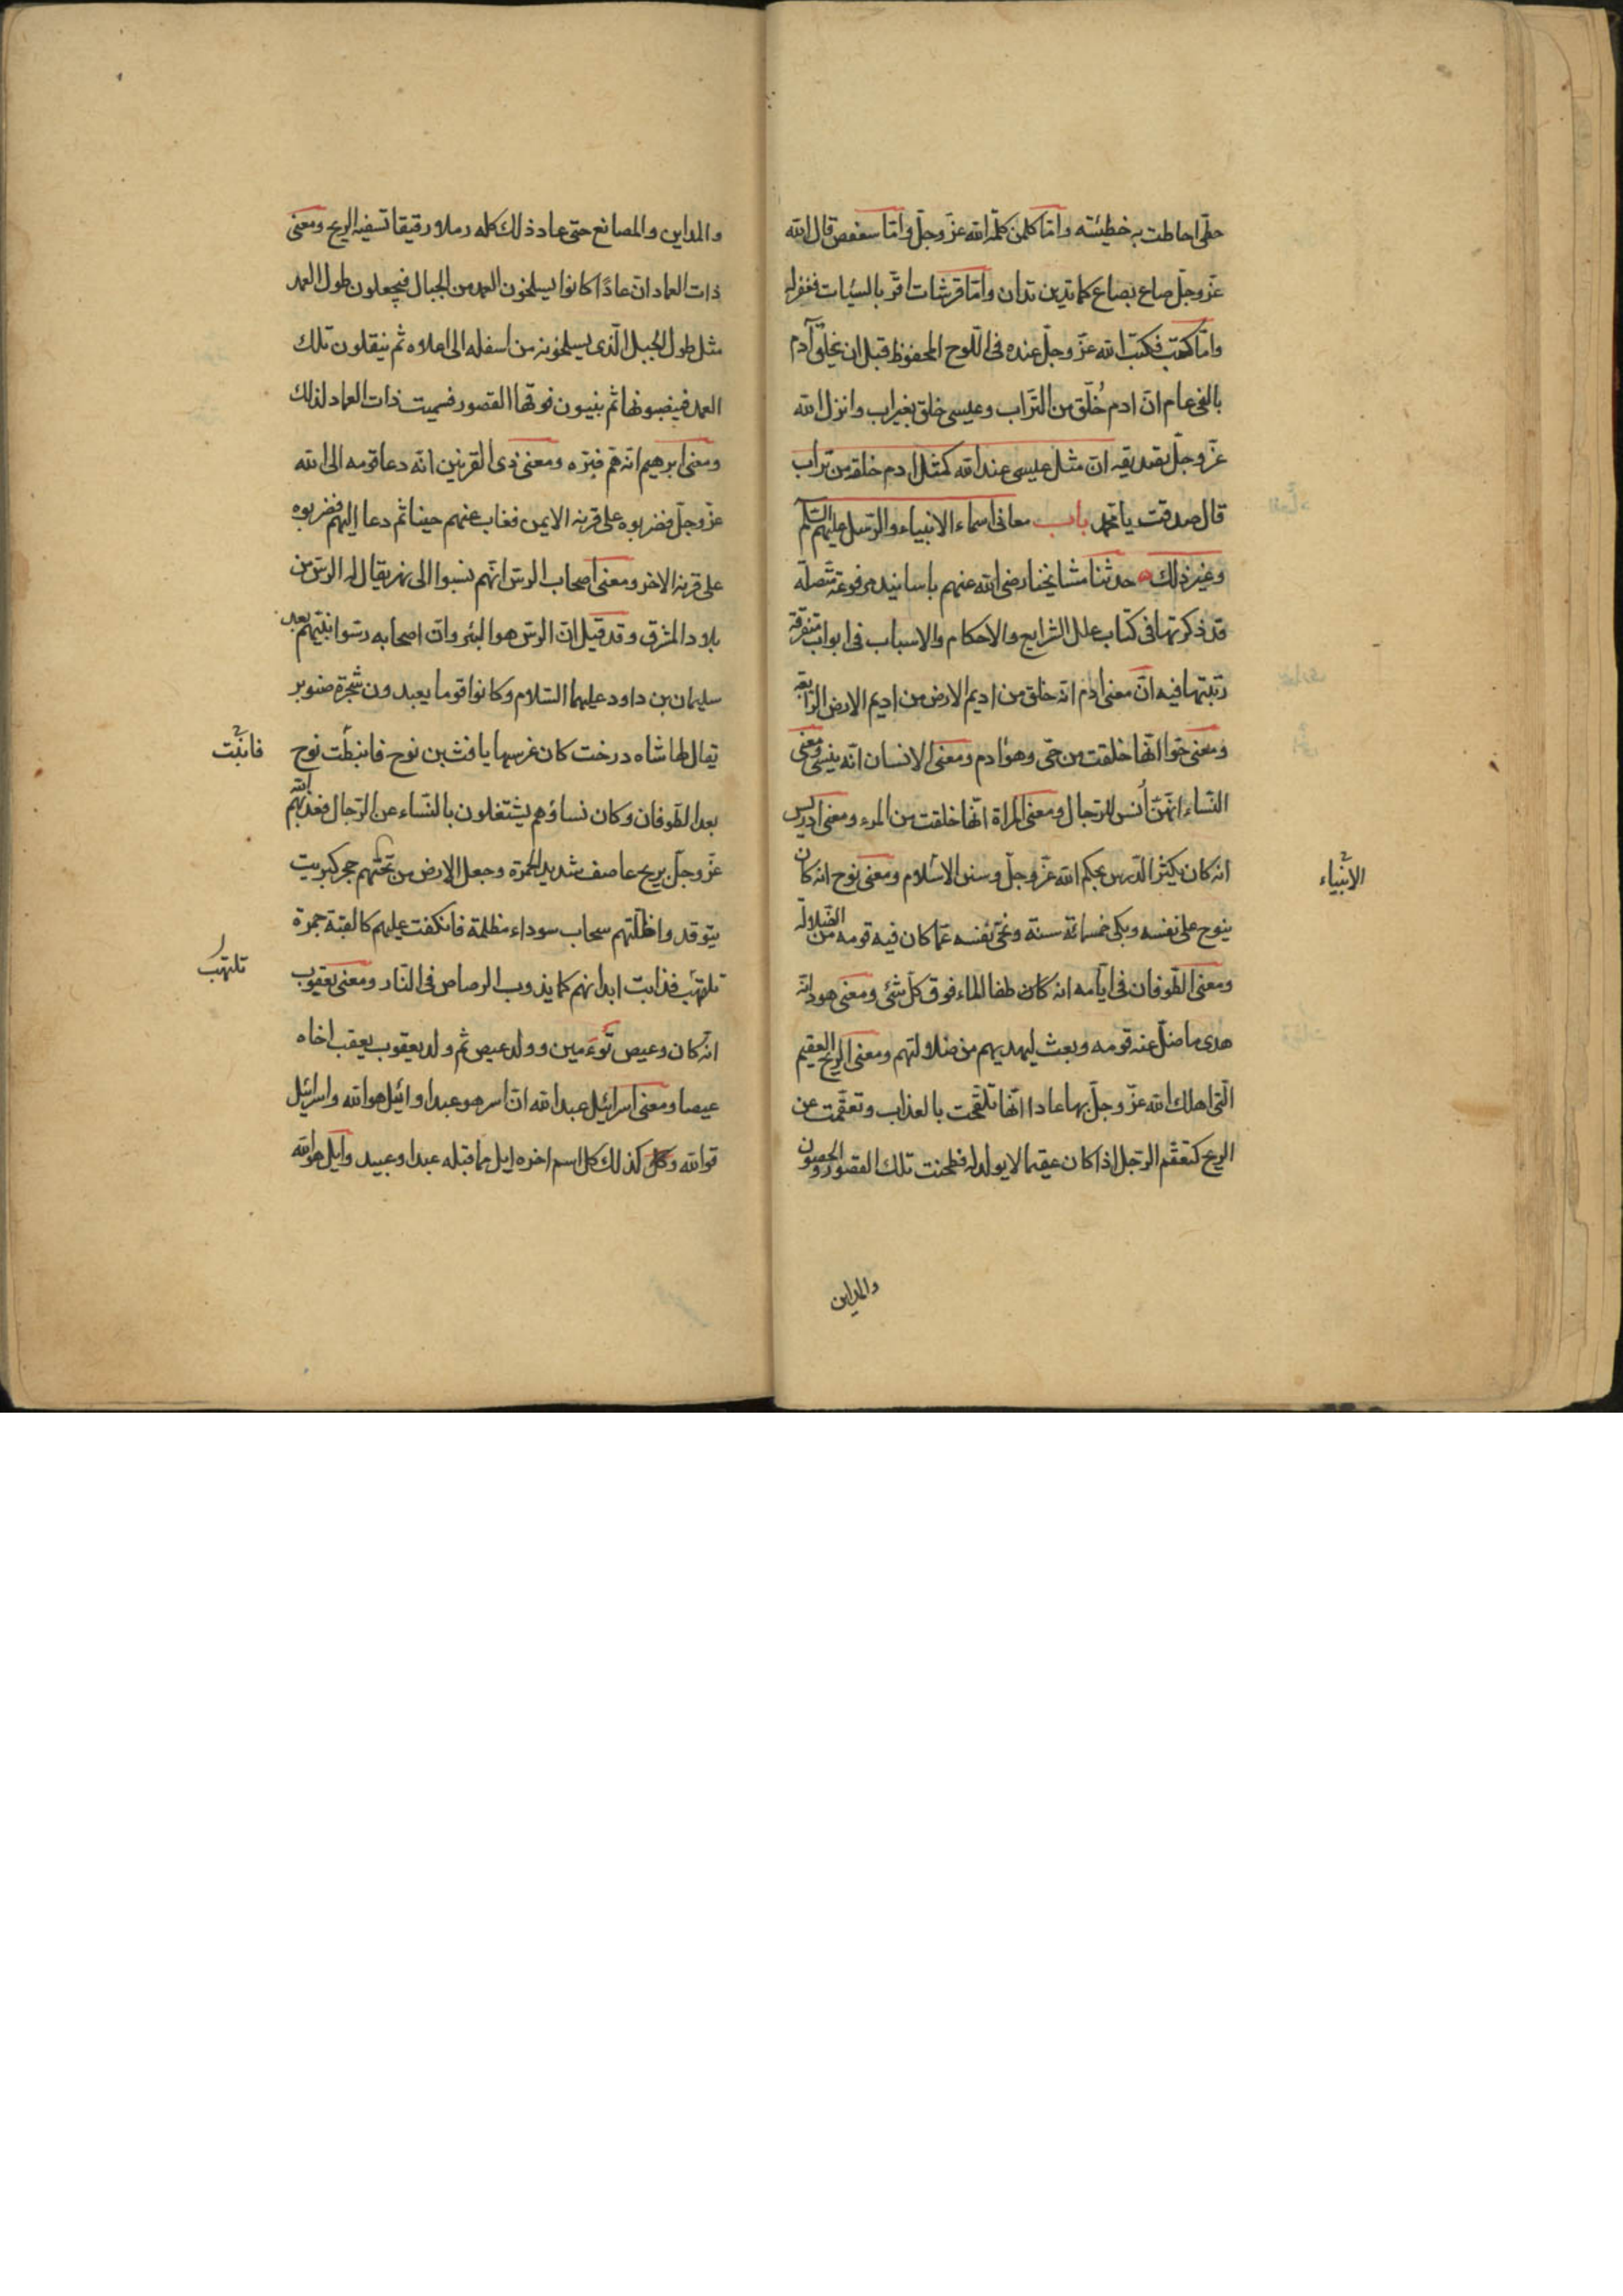 حطّى احاطت به خطيئته وامّا كلمن كلّم الله عزّ وجلّ وامّا سعفص قال الله
عزّ وجلّ صاع بصاع كما تدين تدان وامّا قرشات اقرّ بالسيئات فغفر له
وامّا كتب فكتب الله عزّ وجلّ عنده فى اللّوح المحفوظ قبل ان يخلق آدم
بالفى عام انّ ادم خُلق من التراب وعيسى خلق بغير اب وانزل الله
عزّ وجلّ تصديقه انّ مثل عيسى عند الله كمثل ادم خلقه من تراب
قال صدقت يا محمّد باب معانى اسماء الانبياء والرّسل عليهم السّلام
وغير ذلك حدثنا مشايخنا رضى الله عنهم باسانيد مرفوعة متّصلة
قد ذكرتها فى كتاب علل الشرايع والاحكام والاسباب فى ابواب متفرّقة
رتّبتها فيه انّ معنى ادم انّه خلق من اديم الارض من اديم الارض الرّابعة
ومعنى حوّا انّها خلقت من حىّ وهو ادم ومعنى الانسان انّه ينسى ومعنى
النّساء انهنّ اُنس للرّجال ومعنى المراة انّها خلقت من المرء ومعنى ادريس
انه كان يكثر الدّرس بحكم الله عزّ وجلّ وسنن الاسلام ومعنى نوح انه كان
الانبياء
ينوح على نفسه وبكى خمسمائة سنة ونحّى نفسه عمّا كان فيه قومه من الضّلالة
ومعنى الطّوفان فى ايّامه انه كان طفا الماء فوق كلّ شئ ومعنى هود انّه
هدى ما ضلّ عنه قومه وبعث ليهديهم من ضلالتهم ومعنى الرّيح العقيم
الّتى اهلك الله عزّ وجلّ بها عادا انّها تلقّحت بالعذاب وتعقّمت عن
الريح كتعقّم الرّجل اذا كان عقيما لا يولد له فطحنت تلك القصور والحصون
والمداين
والمداين والمصانع حتى عاد ذلك كله رملا رقيقا تسفيه الريح ومعنى
ذات العماد انّ عادًا كانوا يسلخون العمد من الجبال فيجعلون طول العمد
مثل طول الجبل الّذى يسلخونه من اسفله الى اعلاه ثم ينقلون تلك
العمد فينصبونها ثم يبنون فوقها القصور فسميت ذات العماد لذلك
ومعنى ابرهيم انه همّ فبرّه ومعنى ذى القرنين انه دعا قومه الى الله
عزّ وجلّ فضربوه على قرنه الايمن فغاب عنهم حينا ثم دعا اليهم فضربوه
على قرنه الاخر ومعنى اصحاب الرسّ انّهم نسبوا الى نهر يقال له الرسّ من
بلاد المشرق وقد قيل انّ الرسّ هو البئر وانّ اصحابه رسّوا نبيّهم بعد
سليمان بن داود عليهما السّلام وكانوا قوما يعبدون شجرة صنوبر
يقال لها شاه درخت كان غرسها يافث بن نوح فانبطت نوح
فانبتت
بعد الطوفان وكان نساؤهم يشتغلون بالنّساء عن الرّجال فعذّبهم الله
عزّ وجلّ بريح عاصف شديد الحمرة وجعل الارض من تحتهم حجر كبريت
يتوقد واظلّتهم سحاب سوداء مظلمة فانكفت عليهم كالقبّة جمرة
تلتهب فذابت ابدانهم كما يذوب الرصاص فى النّار ومعنى يعقوب
تلتهب
انّه كان وعيص توءمين وولد عيص ثم ولد يعقوب يعقب اخاه
عيصا ومعنى اسرائيل عبد الله انّ اسر هو عبد وائيل هو الله واسرائيل
قوة الله وكل كذلك كل اسم اخره ايل ما قبله عبد او عبيد وايل هو الله